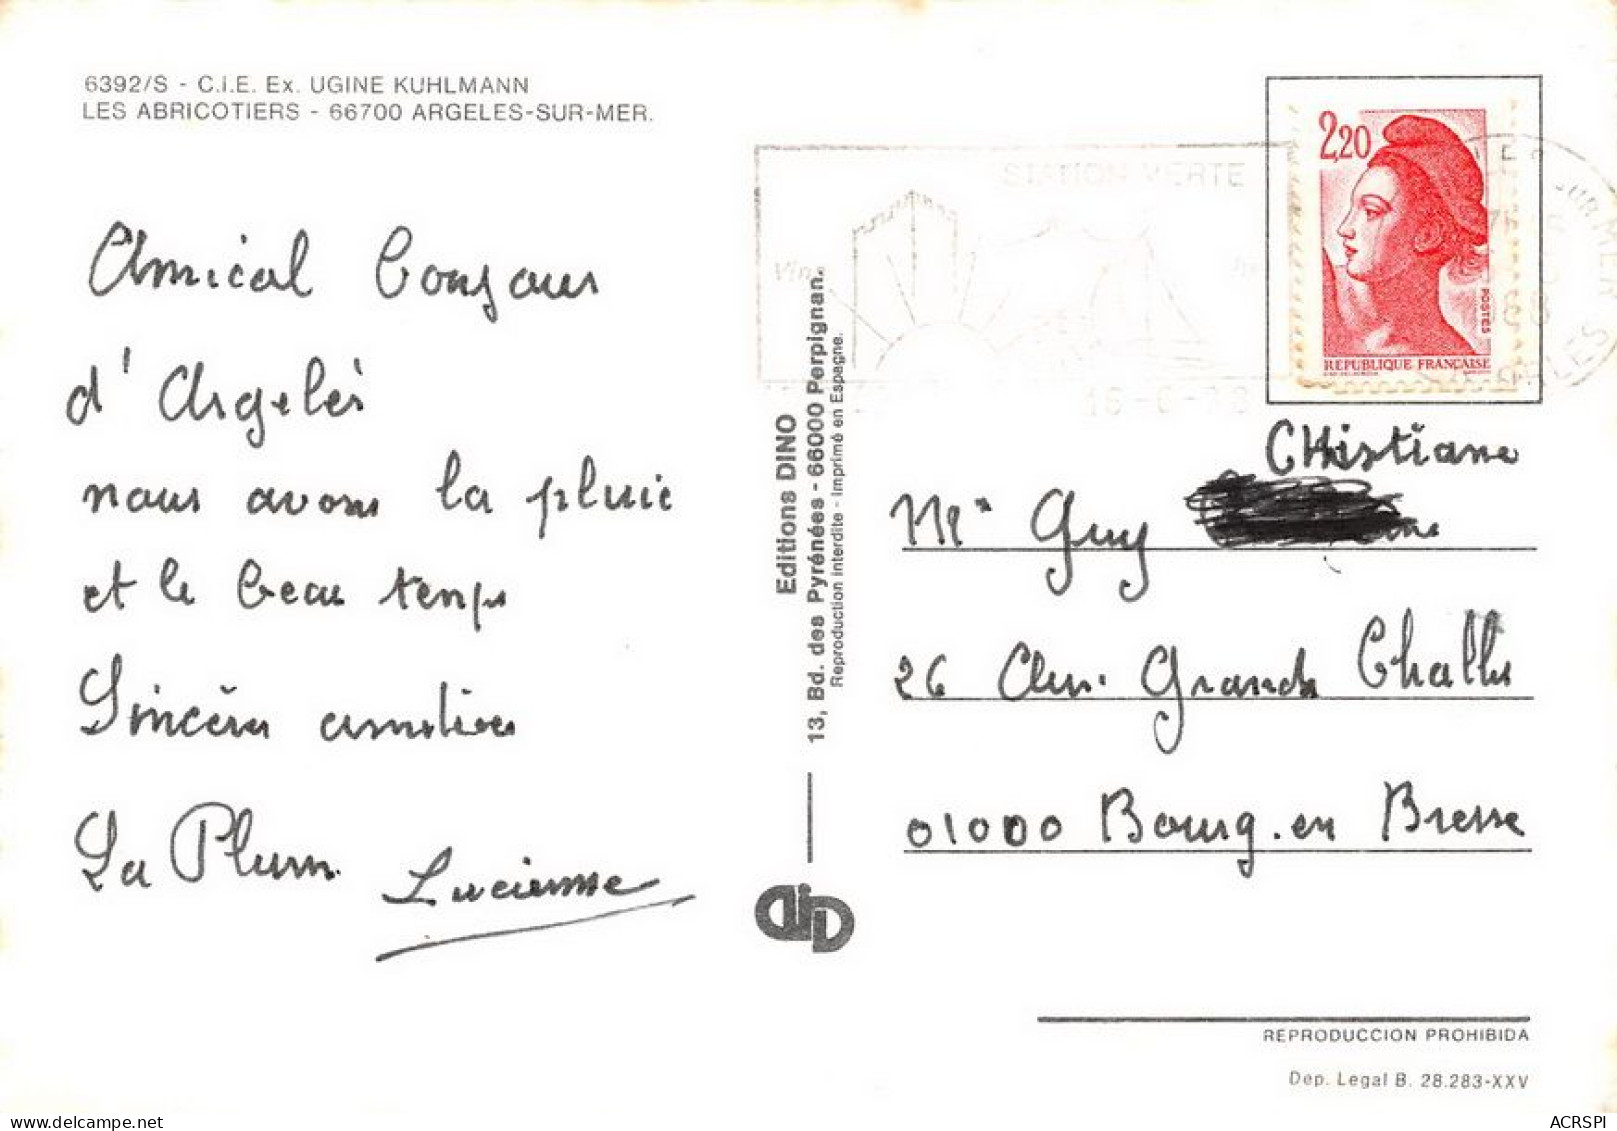 6392/S - C.I.E. Ex. UGINE KUHLMANN
LES ABRICOTIERS - 66700 ARGELES-SUR-MER.
Amical Bonjour
d'Argelès
nous avons la pluie
et le beau temps
Sincères amitiés
La Plum
Lucienne
Editions DINO
13, Bd. des Pyrénées - 66000 Perpignan.
Reproduction interdite - Imprimé en Espagne.
STATION VERTE
2,20
POSTES
REPUBLIQUE FRANÇAISE
SUR MER
CHristiane
Mr Guy
26 Grande Challes
01000 Bourg.en Bresse
REPRODUCCION PROHIBIDA
Dep. Legal B. 28.283-XXV
ACRSPI